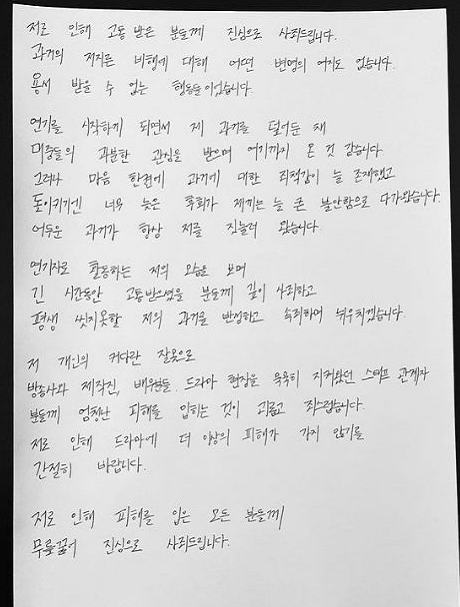 저로 인해 고통 받은 분들께 진심으로 사죄드립니다.
과거의 저지른 비행에 대해 어떤 변명의 여지도 없습니다.
용서 받을 수 없는 행동들이었습니다.
연기를 시작하게 되면서 제 과거를 덮어둔 채
대중들의 과분한 관심을 받으며 여기까지 온 것 같습니다.
그러나 마음 한편에 과거에 대한 죄책감이 늘 존재했고
돌이키기엔 너무 늦은 후회가 제게는 늘 큰 불안함으로 다가왔습니다.
어두운 과거가 항상 저를 짓눌러 왔습니다.
연기자로 활동하는 저의 모습을 보며
긴 시간동안 고통받으셨을 분들께 깊이 사죄하고
평생 씻지못할 저의 과거를 반성하고 속죄하며 뉘우치겠습니다.
저 개인의 커다란 잘못으로
방송사와 제작진, 배우들, 드라마 현장을 묵묵히 지켜왔던 스태프 관계자
분들께 엄청난 피해를 입히는 것이 괴롭고 죄스럽습니다.
저로 인해 드라마에 더 이상의 피해가 가지 않기를
간절히 바랍니다.
저로 인해 피해를 입은 모든 분들께
무릎꿇어 진심으로 사죄드립니다.